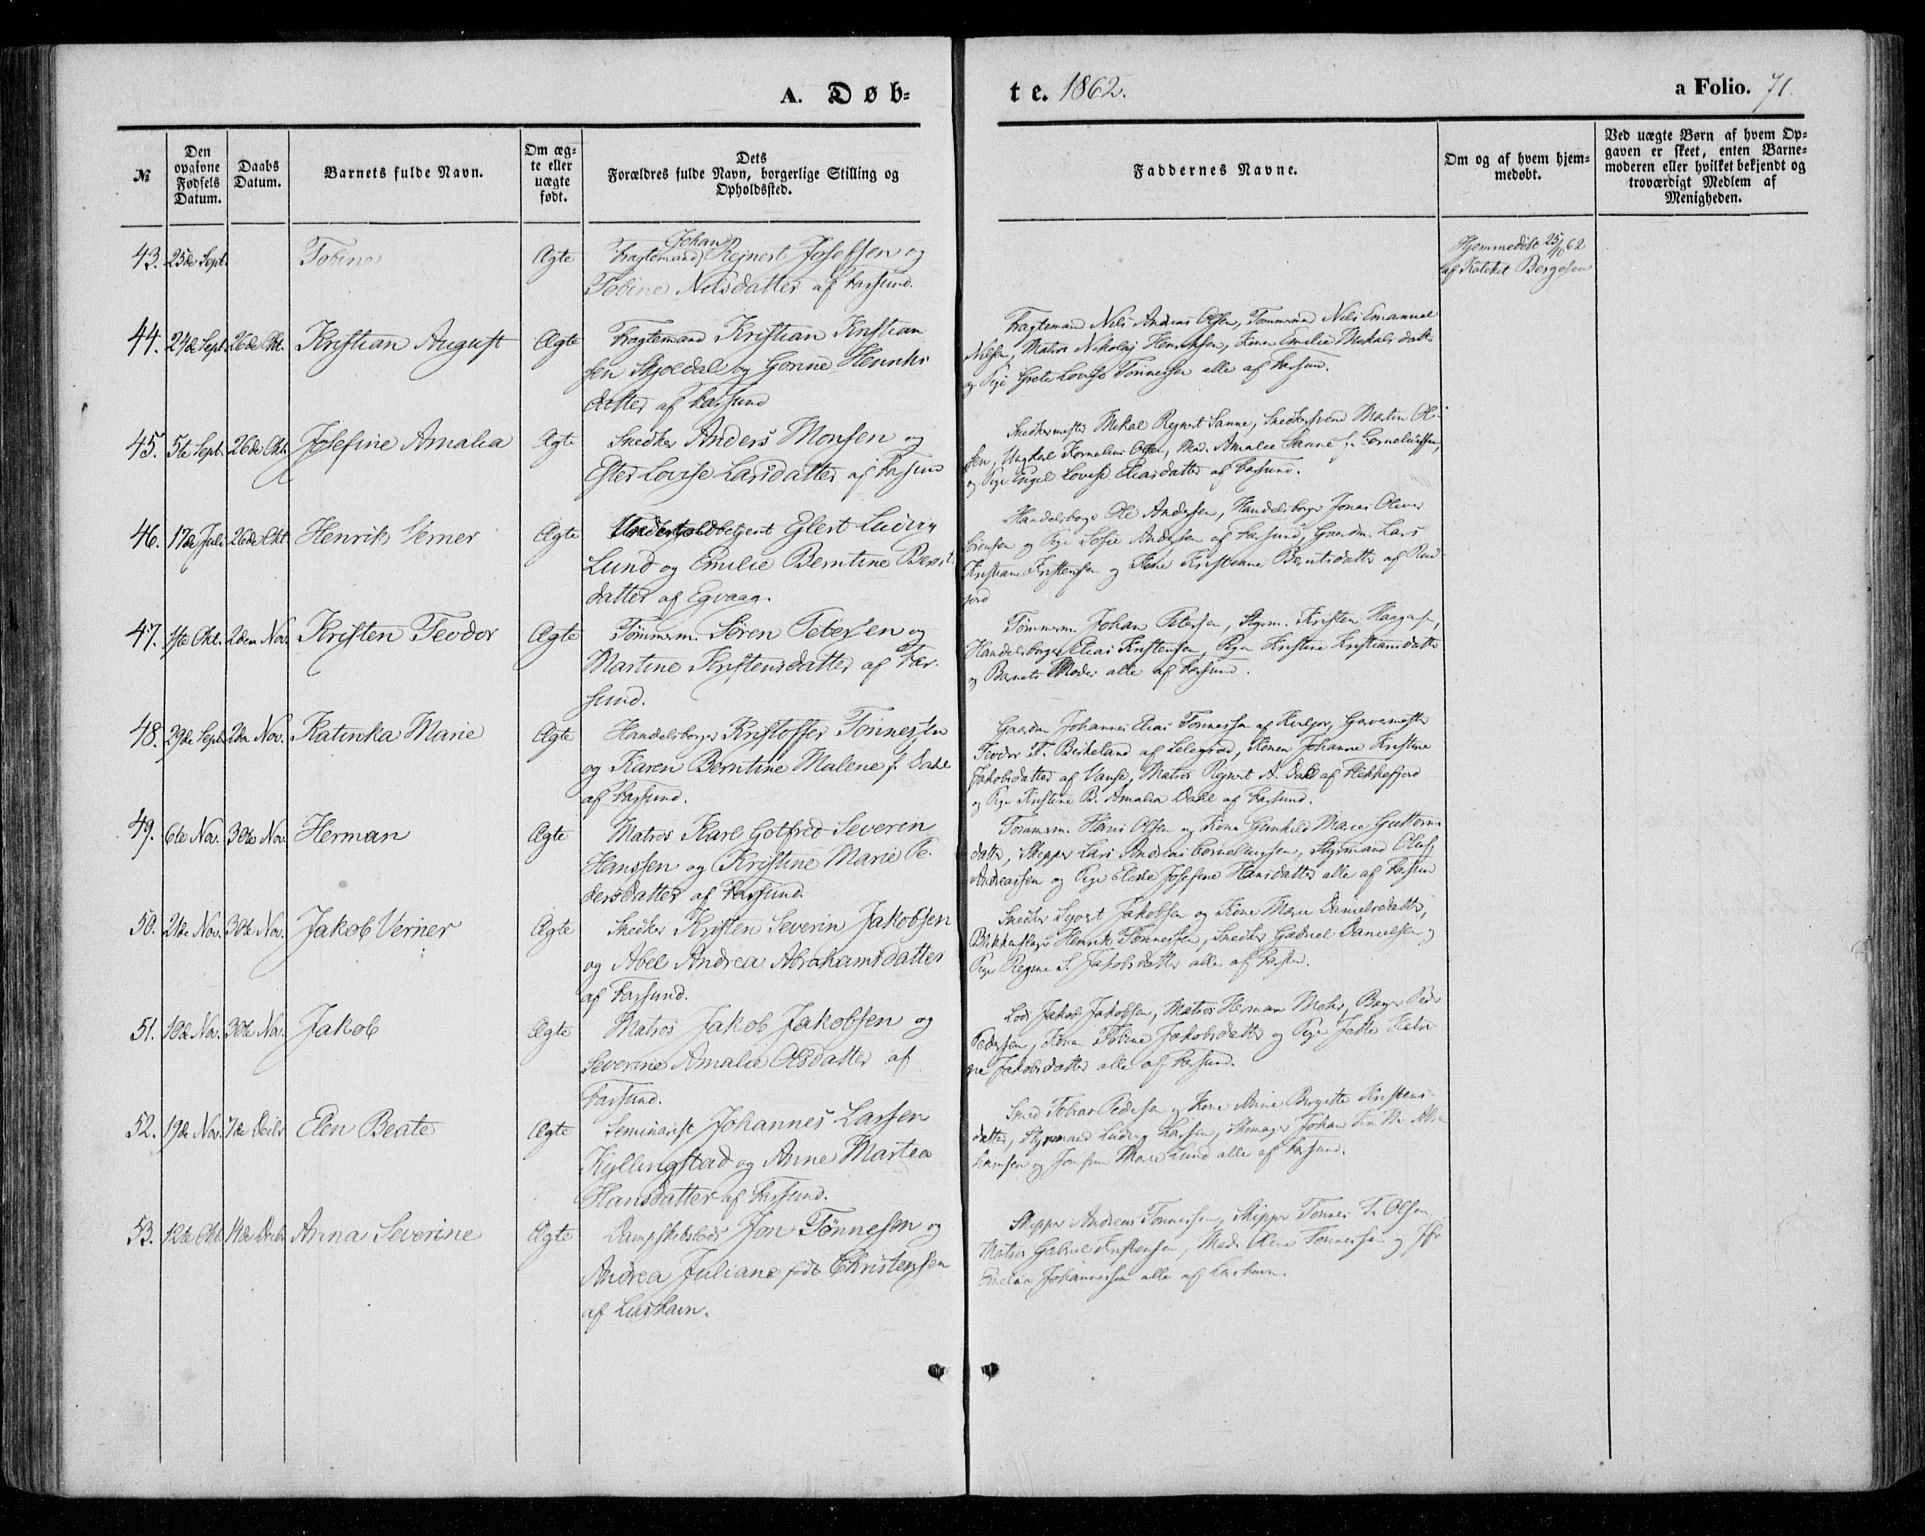 A. Døb-
te. 1862.
a Folio. 71.
№
Den opgivne Fødsels Datum.
Daabs Datum.
Barnets fulde Navn.
Om ægte eller uægte født.
Dets
Forældres fulde Navn, borgerlige Stilling og
Opholdssted.
Faddernes Navne.
Om og af hvem hjem-
medøbt.
Ved uægte Børn af hvem Op-
gaven er skeet, enten Barne-
moderen eller hvilket bekjendt og
troværdigt Medlem af
Menigheden.
43. 25de Sept. Tobine Ægte Fragtemand Johan Rejnert Josefsen og
Tobine Nilsdatter af Farsund.
Hjemmedøbt 25/10 62
af Kateket Bergesen
44. 24de Sept. 26de Okt. Kristian August Ægte Fragtemand Kristian Kristian
sen Skjoldal og Gorine Henriks
datter af Farsund
Fragtemand Nils Andreas Olsen, Tømmermd Nils Emanuel
Nilsen, Matros Nikolaj Henriksen, Kone Emilie Mikalsdatter
og Pige Grete Lovise Tønnessen alle af Farsund.
45. 5te Sept. 26de Okt. Josefine Amalia Ægte Snedker Anders Monsen og
Ester Lovise Larsdatter af Farsund
Snedkermester Mikal Rejnert Sanne, Snedkersvend Martin Ol-
sen, Ungkarl Kornelius Olsen, Mad. Amalie Sanne f. Corneliussen,
og Pige Engel Lovise Eliasdatter af Farsund.
46. 17de Juli 26de Okt. Henrik Verner Ægte Undertoldbetjent Eglert Ludvig
Lund og Emilie Berntine Bernt
datter af Egvaag.
Handelsborger Ole Andersen, Handelsborger Jonas Oliver
Sørensen og Pige Sofie Andersen af Farsund, Gaardm. Lars
Kristian Kristensen og Kristiane Berntsdatter af
47. 1ste Okt. 2den Nov. Kristen Teodor Ægte Tømmerm. Søren Petersen og
Martine Kristensdatter af Far-
sund.
Tømmerm. Johan Petersen, Styrm. Kristen
Handelsborger Elias Kristensen, Pigen Kristine Kristiansdatter
og Barnets Moder alle af Farsund.
48. 29de Sept. 2den Nov. Katinka Marie Ægte Handelsborger Kristoffer Tønnessen
og Karen Berntine Malene f. Dahl
af Farsund.
Gaardm Johannes Elias Tønnessen af
Teodor T. Birkeland af Lelegrad, Konen Johanne Kristine
Jakobsdatter af Vanse, Matros Rejnert A. Dahl af Flekkefjord
og Pige Kristine B. Amalia Dahl af Farsund.
49. 6te Nov. 30te Nov. Herman Ægte Matros Karl Gotfred Severin
Hanssen og Kristine Marie Pe-
dersdatter af Farsund
Tømmerm. Hans Olsen og Kone Gunhild Marie Guttorms
datter, Skipper Lars Andreas Corneliussen, Styrmand Oluf
Andreassen og Pige Elene Josefine Hansdatter alle af Farsund
50. 21de Nov. 30te Nov. Jakob Verner Ægte Snedker Kristen Severin Jakobsen
og Abel Andrea Abrahamsdatter
af Farsund.
Snedker Jakobsen og Kone Marie Danielsdatter,
Blikkenslager Henrik Tønnessen, Snedker Gabriel Danielsen og
Pige Regine S. Jakobsdatter alle af
51. 10de Nov. 30te Nov. Jakob Ægte Matros Jakob Jakobsen og
Severine Amalie Olsdatter af
Farsund.
Lods Jakob Jakobsen, Matros Herman Mohr, Bager Peder
Pedersen, Konen Tobine Jakobsdatter og Pige Jette Katri
ne Jakobsdatter alle af Farsund.
52. 19de Nov. 7de Decbr Elen Beate Ægte Seminarist Johannes Larsen
Kyllingstad og Anne Martea
Hansdatter af Farsund.
Smed Tobias Pedersen og Kone Anne Birgitte Kristens-
datter, Styrmand Ludvig Larsen, Skomager Johan
og Jomfru Marie Lund alle af Farsund.
53. 12te Okt. 14de Decbr Anna Severine Ægte Dampskibslods Jon Tønnesen og
Andrea Juliane født Christensen
af Lushavn.
Skipper Andreas Tønnessen, Skipper Tønnes T. Olsen,
Matros Gabriel Kristensen, Mad. Olene Tønnessen og Jfr
Johannessen alle af Lushavn.